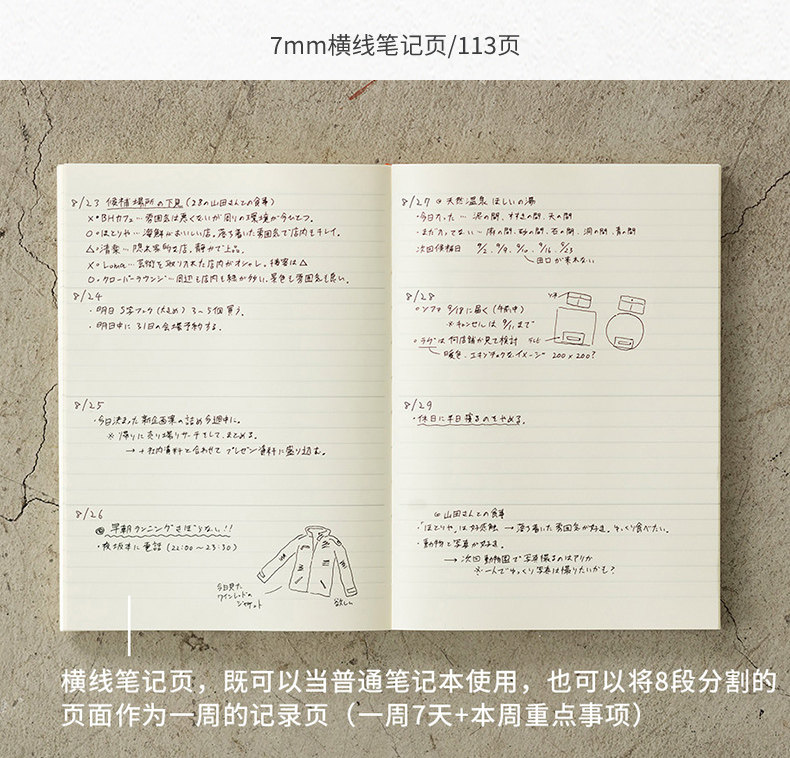 7mm横线笔记页/113页
8/23 候補場所の下見(28の山田さんとの食事)
×・BHカフェ…雰囲気は悪くないが周りの環境が今ひとつ。
○・ほとりや…海鮮がおいしい店。落ち着いた雰囲気で店内もキレイ。
△・清葉…隠れ家的な店。静かで上品。
×・Loma…芸術を取り入れた店内がオシャレ。接客は△
○・クローバーラウンジ…周辺も店内も緑が多い、景色も雰囲気も良い。
8/24
・明日 S字フック(大きめ) 3〜5個買う。
・明日中に31日の会場予約する。
8/25
・今日決まった新企画案の詰め今週中に。
※帰りに売り場リサーチをして、まとめる。
→+社内資料と合わせてプレゼン資料に盛り込む。
8/26
早朝ランニングさぼらない!!
・夜坂井に電話(22:00〜23:30)
今日見た
ワインレッドの
ジャケット
欲しい
8/27 天然温泉 ほしいの湯
・今日入った…泥の間、すすきの間、天の間
・まだ入ってない…雨の間、砂の間、石の間、洞の間、青の間
次回候補日 9/2、9/9、9/10、9/16、9/23
田口が来れない
8/28
○ソファ 9/18に届く(午前中)
※キャンセルは 9/1、まで
○ラグは何店舗か見て検討
テレビ
暖色、エキゾチックなイメージ 200×200?
8/29
・休日に半日寝るのをやめる。
山田さんとの食事
・「ほとりや」は好感触 → 落ち着いた雰囲気が好き。ゆっくり食べたい。
・動物と写真が好き。
→次回動物園で写真撮るのはアリか
※一人でゆっくり写真は撮りたいかも?
横线笔记页，既可以当普通笔记本使用，也可以将8段分割的
页面作为一周的记录页（一周7天+本周重点事项）